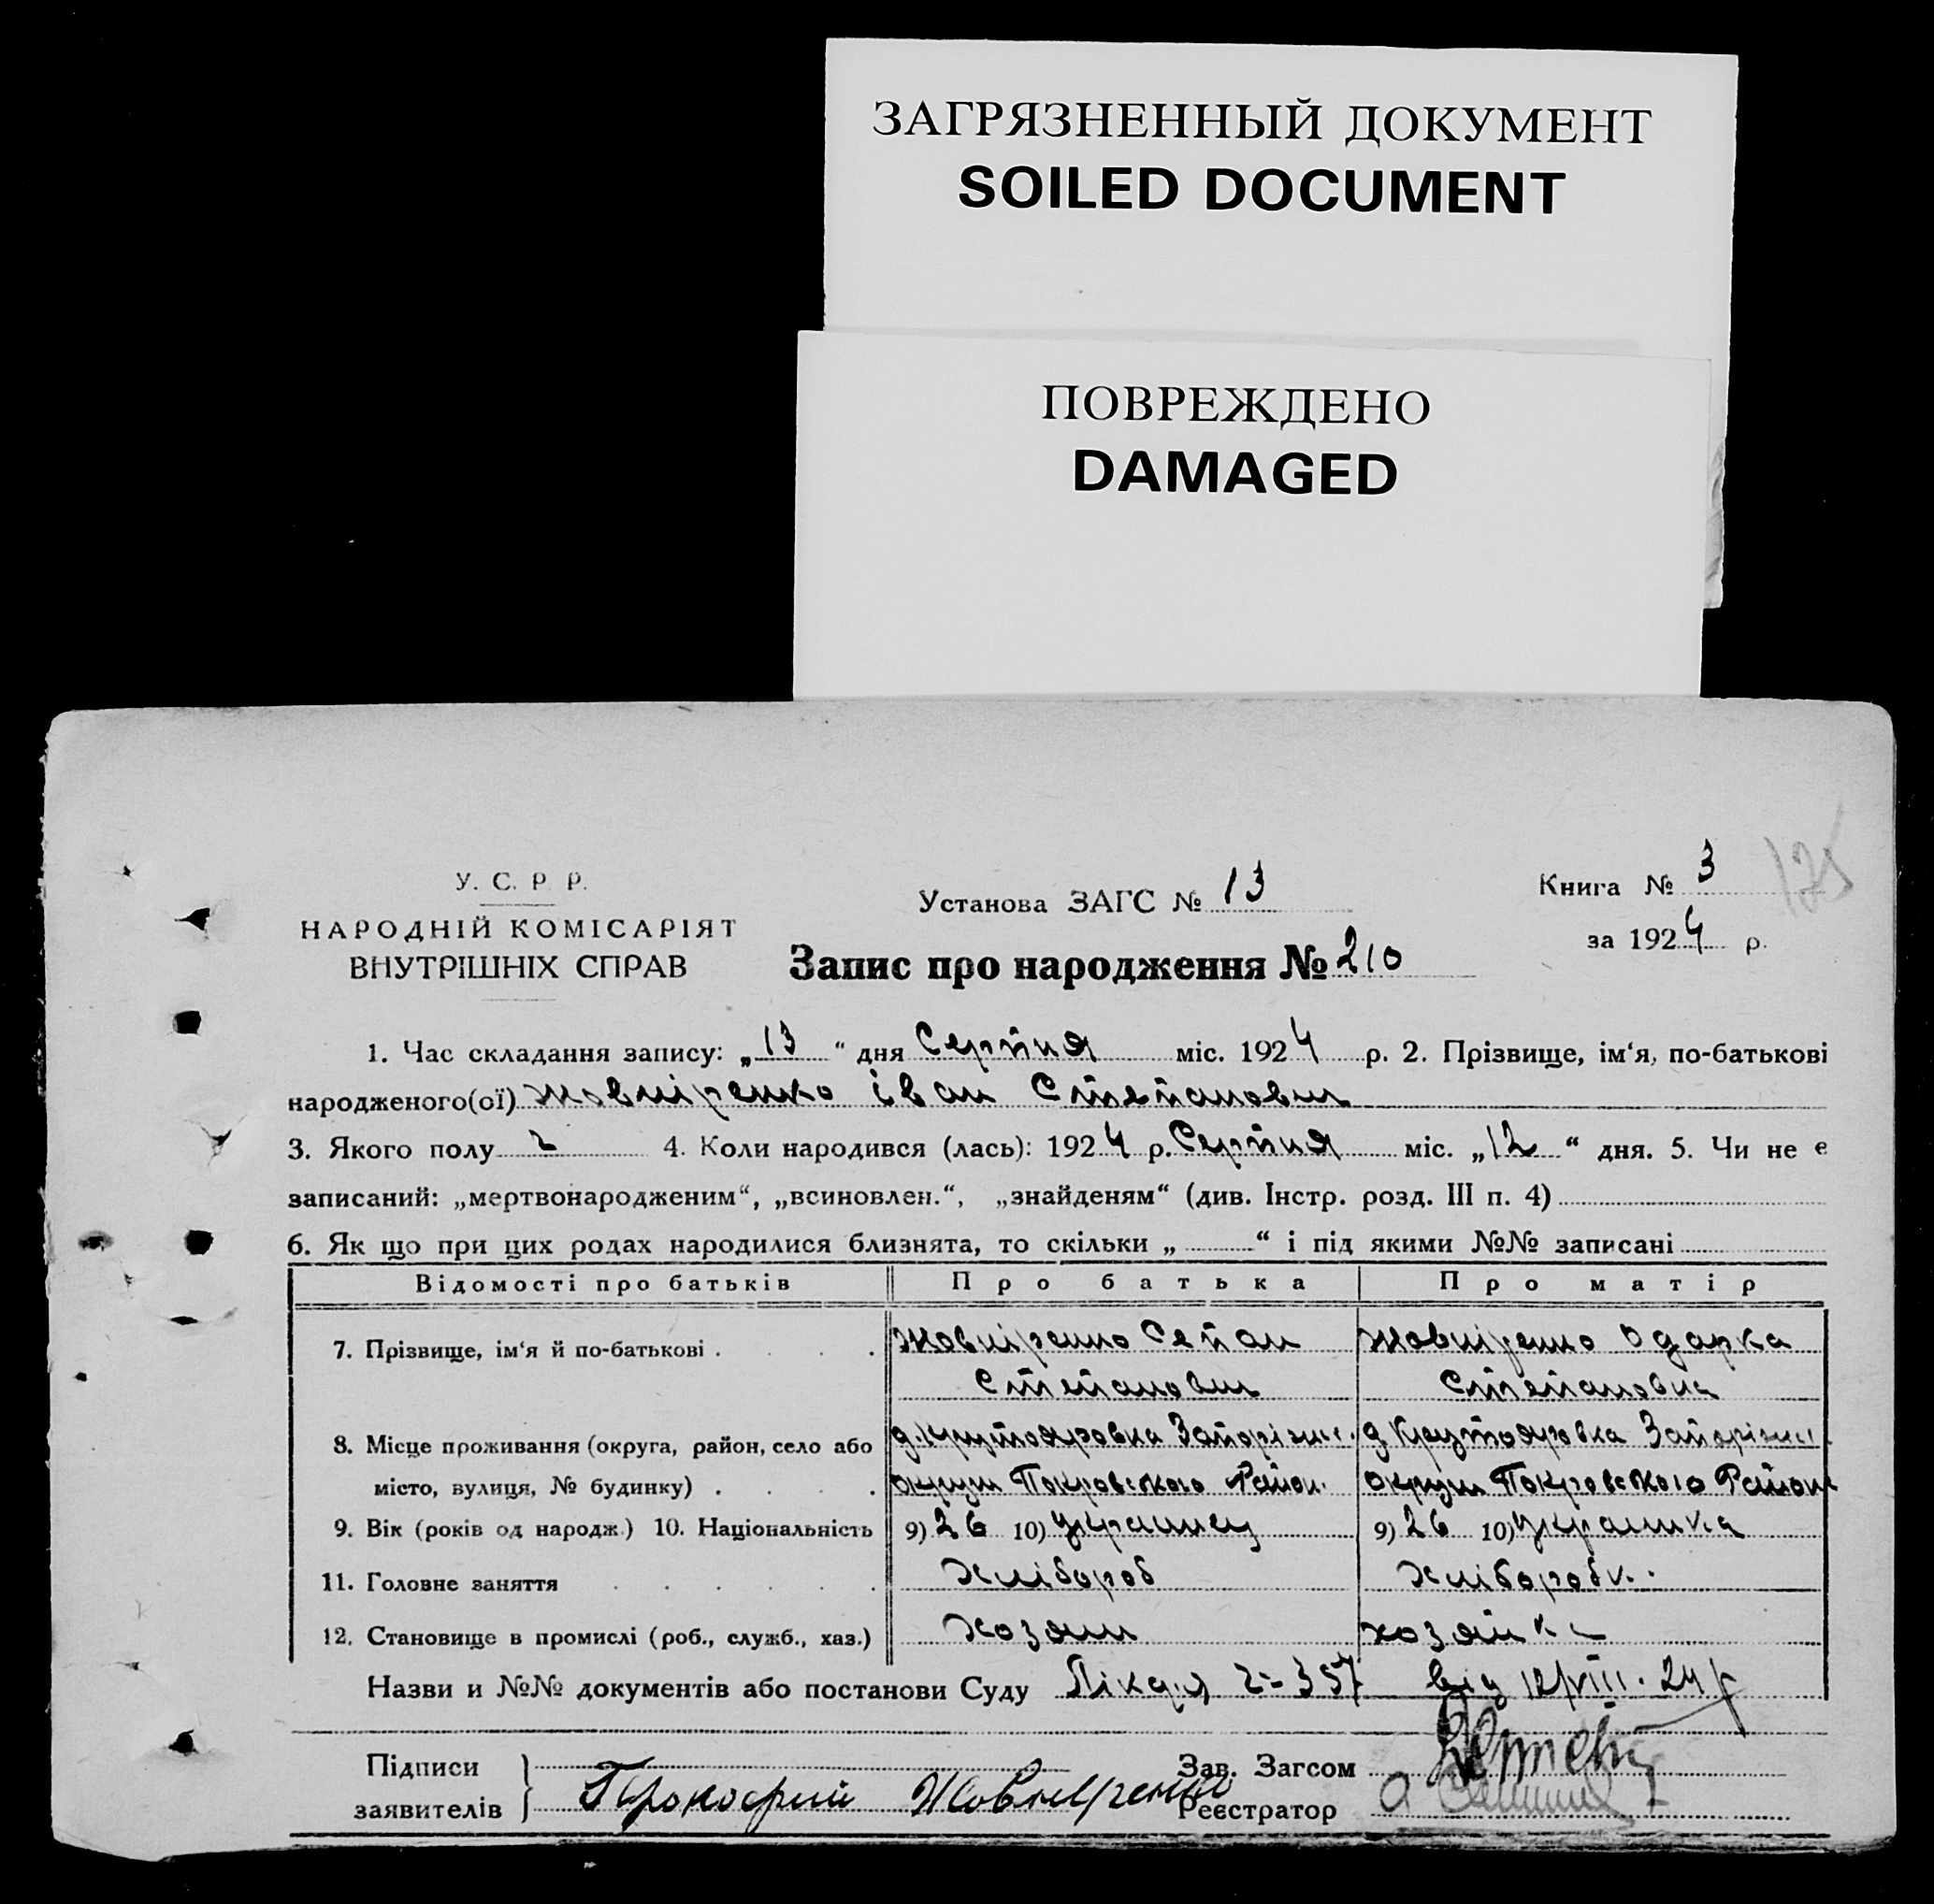 ЗАГРЯЗНЕННЫЙ ДОКУМЕНТ
SOILED DOCUMENT
ПОВРЕЖДЕНО
DAMAGED
125
У. С. Р. Р.
НАРОДНІЙ КОМІСАРІЯТ
ВНУТРІШНІХ СПРАВ
Установа ЗАГС № 13
Книга № 3
за 1924 р.
Запис про народження № 210
1. Час складання запису: „13“ дня Серпня міс. 1924 р. 2. Прізвище, ім‘я, по-батькові
народженого(ої) Жовніренко Іван Степанович
3. Якого полу ч 4. Коли народився (лась): 1924 р. Серпня міс. „12“ дня. 5. Чи не є
записаний: „мертвонародженим“, „всиновлен.“, „знайденям“ (див. Інстр. розд. III п. 4)
6. Як що при цих родах народилися близнята, то скільки „ “ і під якими №№ записані
Відомості про батьків Про батька Про матір
7. Прізвище, ім‘я й по-батькові Жовніренко Сепан Жовніренко Одарка
Степанович Степановна
8. Місце проживання (округа, район, село або д. Крутояровка Запоріжск. д Крутояровка Запоріжск
місто, вулиця, № будинку) округи Покровського Район. округи Покровського Району
9. Вік (років од народж.) 10. Національність 9) 26 10) Украинец 9) 26 10) Украинка
11. Головне заняття Хлібороб Хліборобк.
12. Становище в промислі (роб., служб., хаз.) Хозяин хозяйка
Назви и №№ документів або постанови Суду Лікаря 357 від 12/VIII. 24 р
Підписи
заявителів Прокофий Жовниренко
Зав. Загсом
Реєстратор